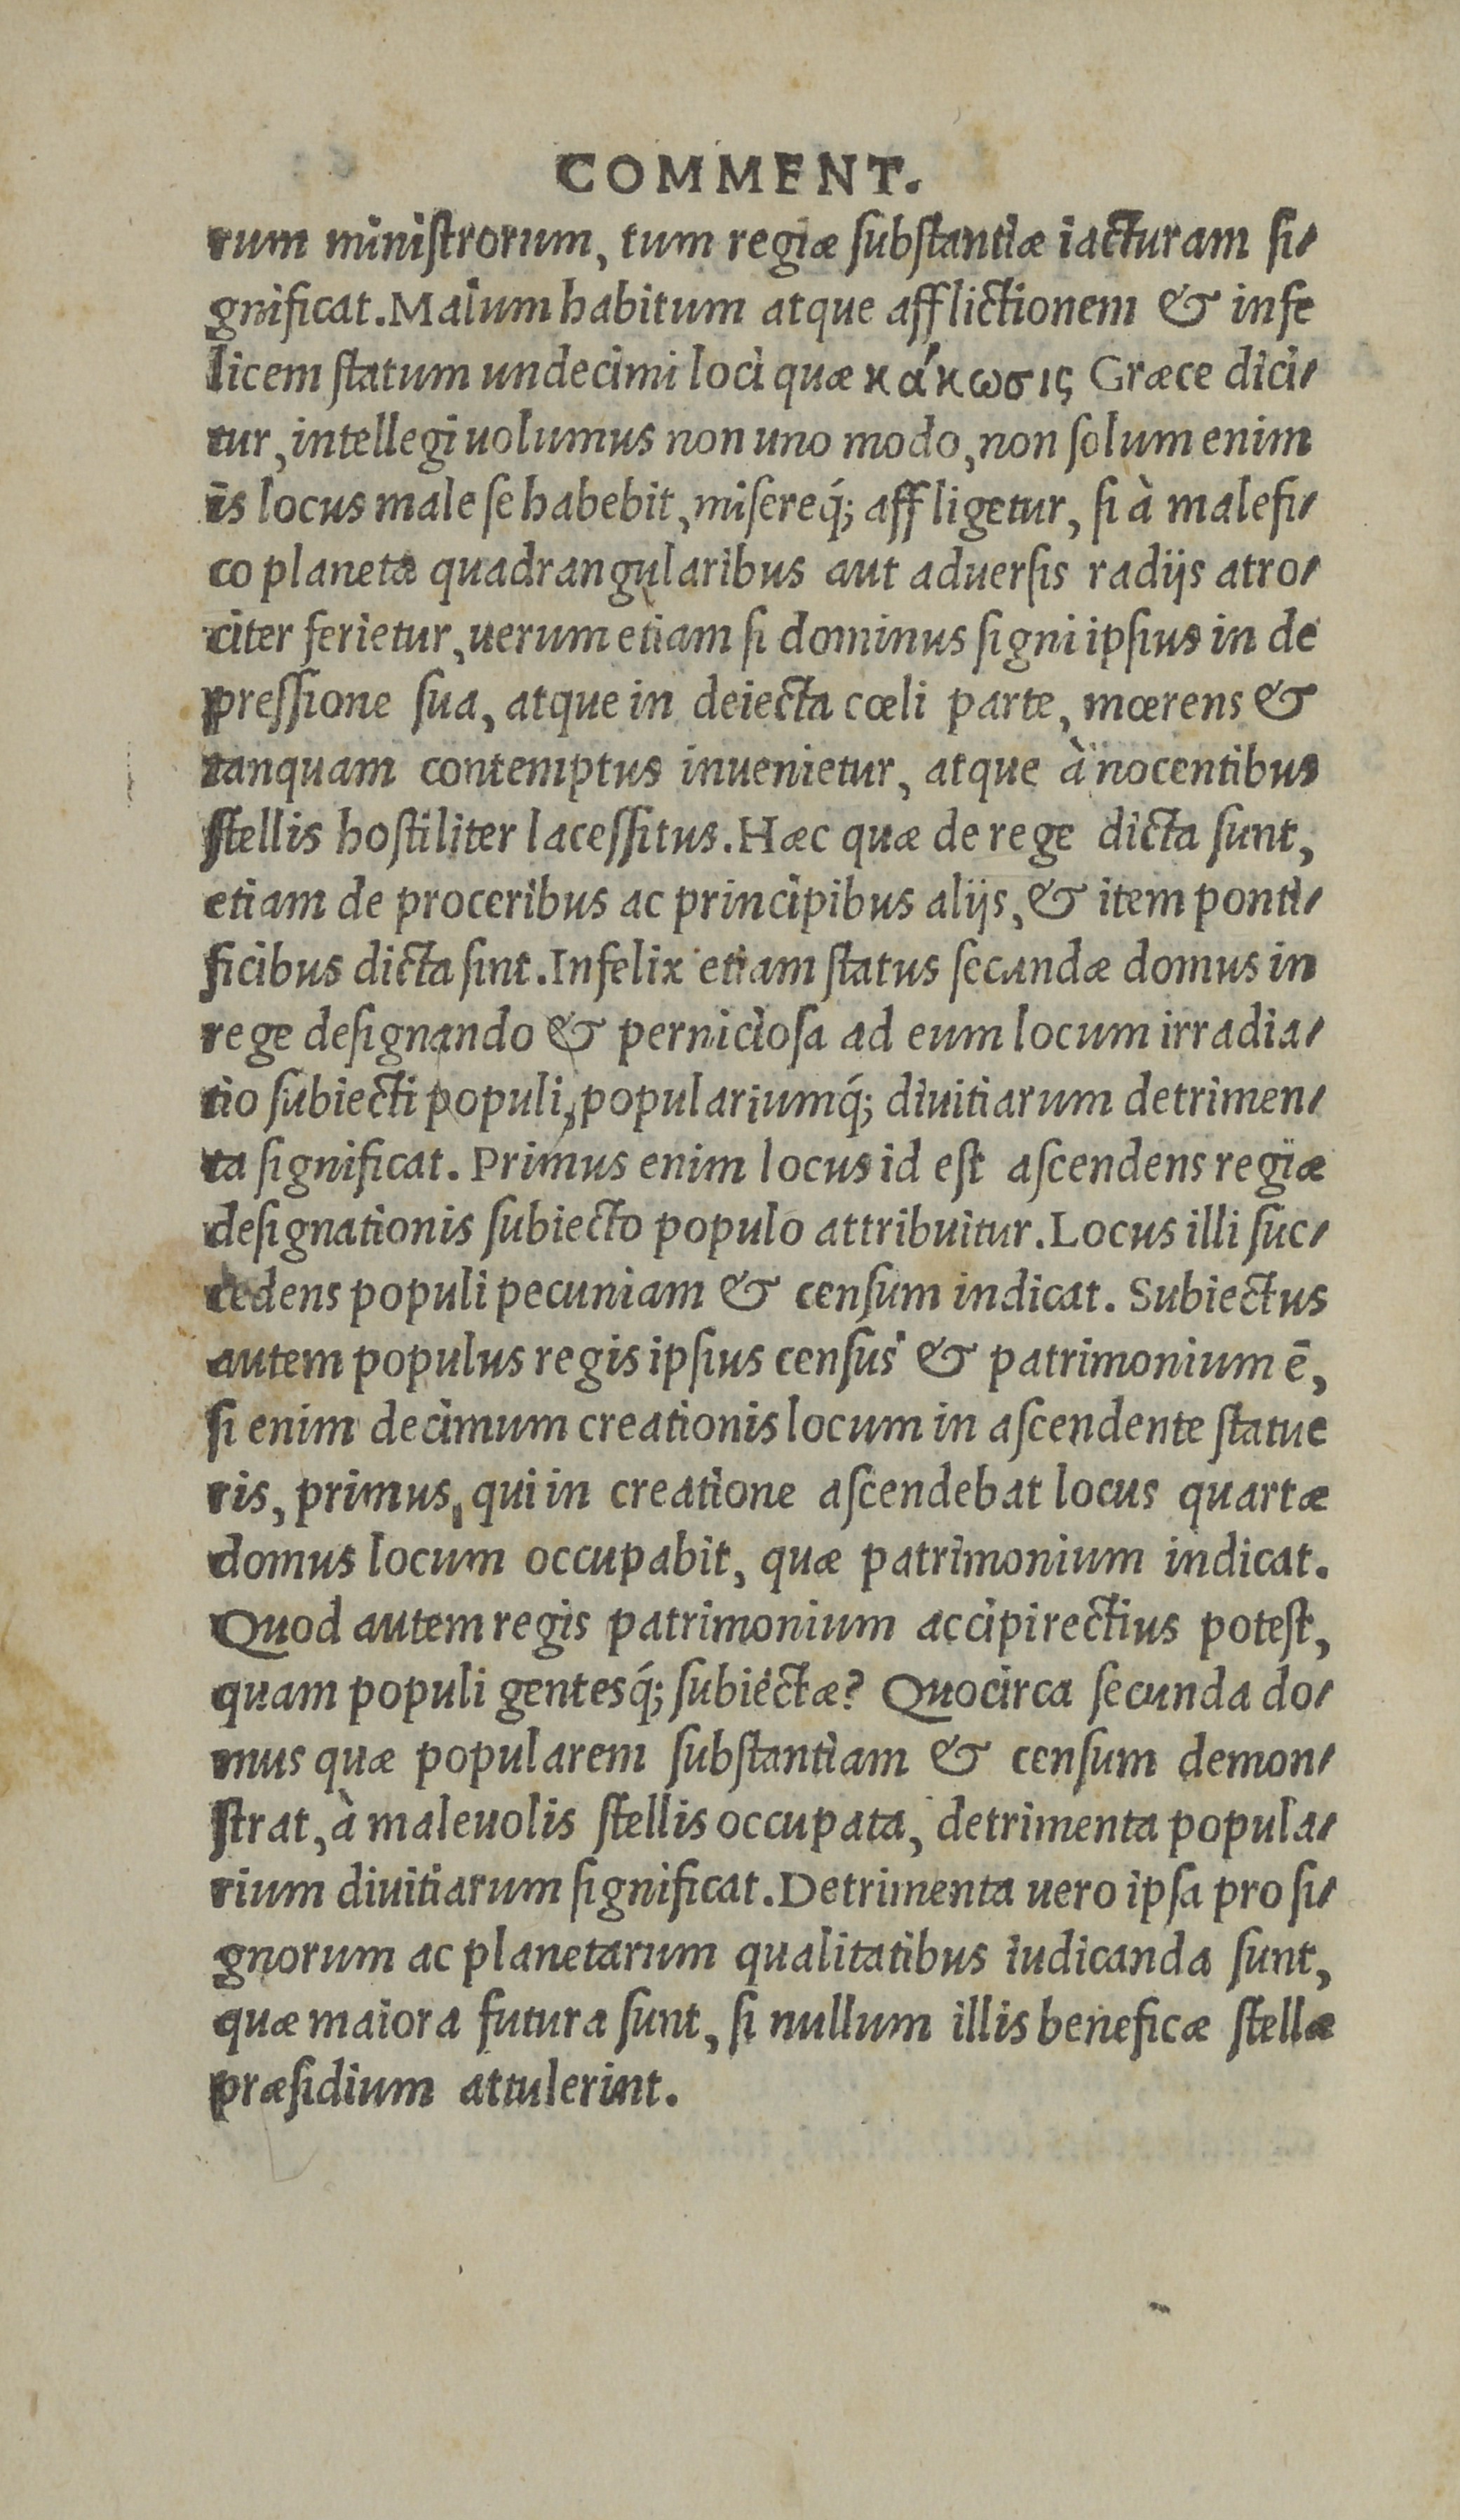 COMMENT.
rum ministrorum, tum regiæ substantiæ iacturam si-
gnificat. Malum habitum atque afflictionem & infe
licem statum undecimi loci quæ κάκωσις Græce dici-
tur, intellegi uolumus non uno modo, non solum enim
is locus male se habebit, misereq́; affligetur, si à malefi-
co planeta quadrangularibus aut aduersis radijs atro-
citer ferietur, uerum etiam si dominus signi ipsius in de
pressione sua, atque in deiecta cœli parte, mœrens &
tanquam contemptus inuenietur, atque à nocentibus
stellis hostiliter lacessitus. Hæc quæ de rege dicta sunt,
etiam de proceribus ac principibus alijs, & item ponti-
ficibus dicta sint. Infelix etiam status secundæ domus in
rege designando & perniciosa ad eum locum irradia-
tio subiecti populi, populariumq́; diuitiarum detrimen-
ta significat. Primus enim locus id est ascendens regiæ
designationis subiecto populo attribuitur. Locus illi suc-
cedens populi pecuniam & censum indicat. Subiectus
autem populus regis ipsius census & patrimonium ē,
si enim decimum creationis locum in ascendente statue
ris, primus, qui in creatione ascendebat locus quartæ
domus locum occupabit, quæ patrimonium indicat.
Quod autem regis patrimonium accipi rectius potest,
quam populi gentesq́; subiectæ? Quocirca secunda do-
mus quæ popularem substantiam & censum demon-
strat, à maleuolis stellis occupata, detrimenta popula-
rium diuitiarum significat. Detrimenta uero ipsa pro si-
gnorum ac planetarum qualitatibus iudicanda sunt,
quæ maiora futura sunt, si nullum illis beneficæ stellæ
præsidium attulerint.